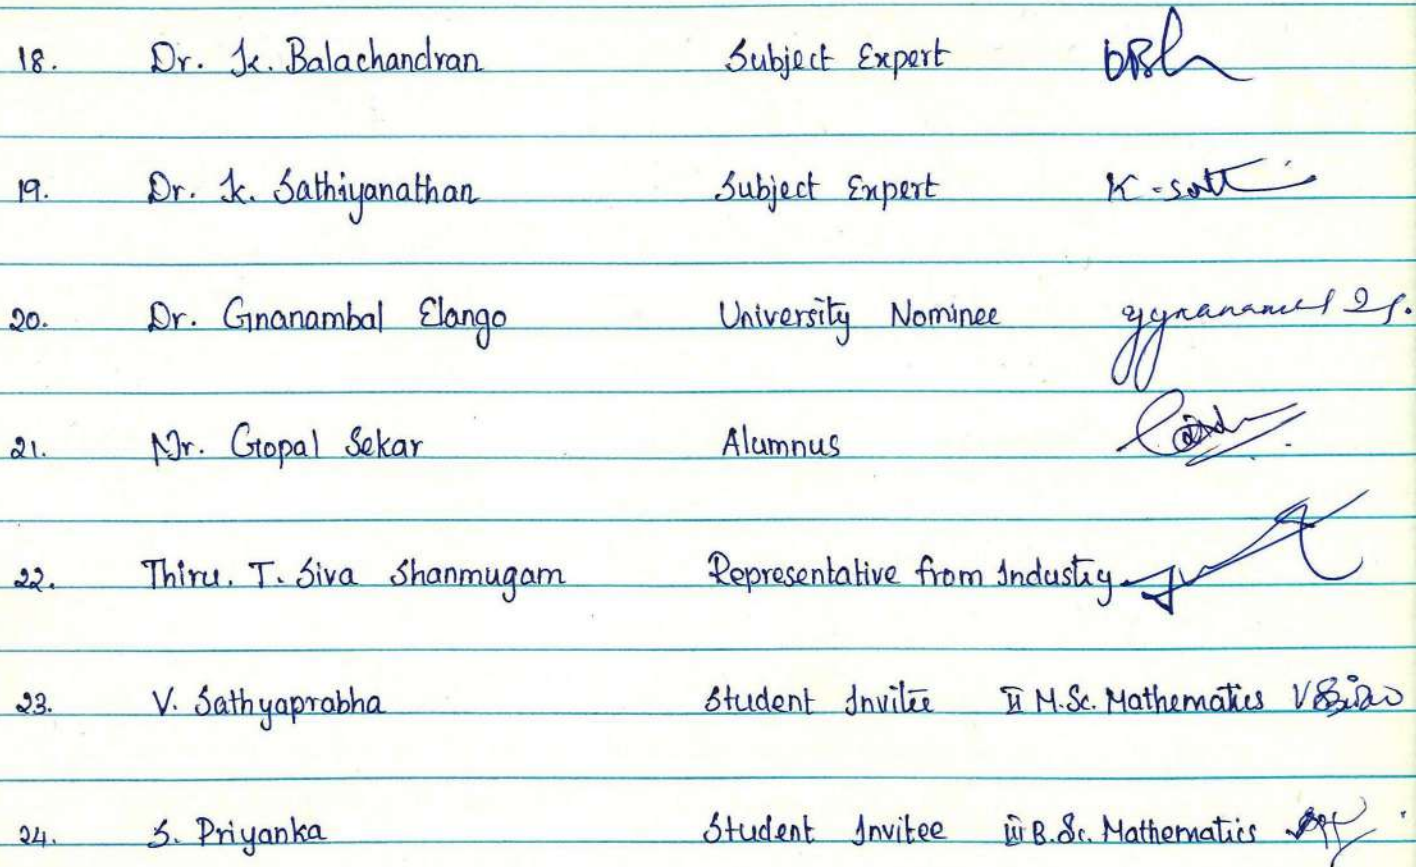 18. Dr. K. Balachandran Subject Expert
19. Dr. K. Sathiyanathan Subject Expert K. Satt
20. Dr. Gnanambal Elango University Nominee
21. Mr. Gopal Sekar Alumnus
22. Thiru. T. Siva Shanmugam Representative from Industry
23. V. Sathyaprabha Student Invitee II M.Sc. Mathematics
24. S. Priyanka Student Invitee III B.Sc. Mathematics